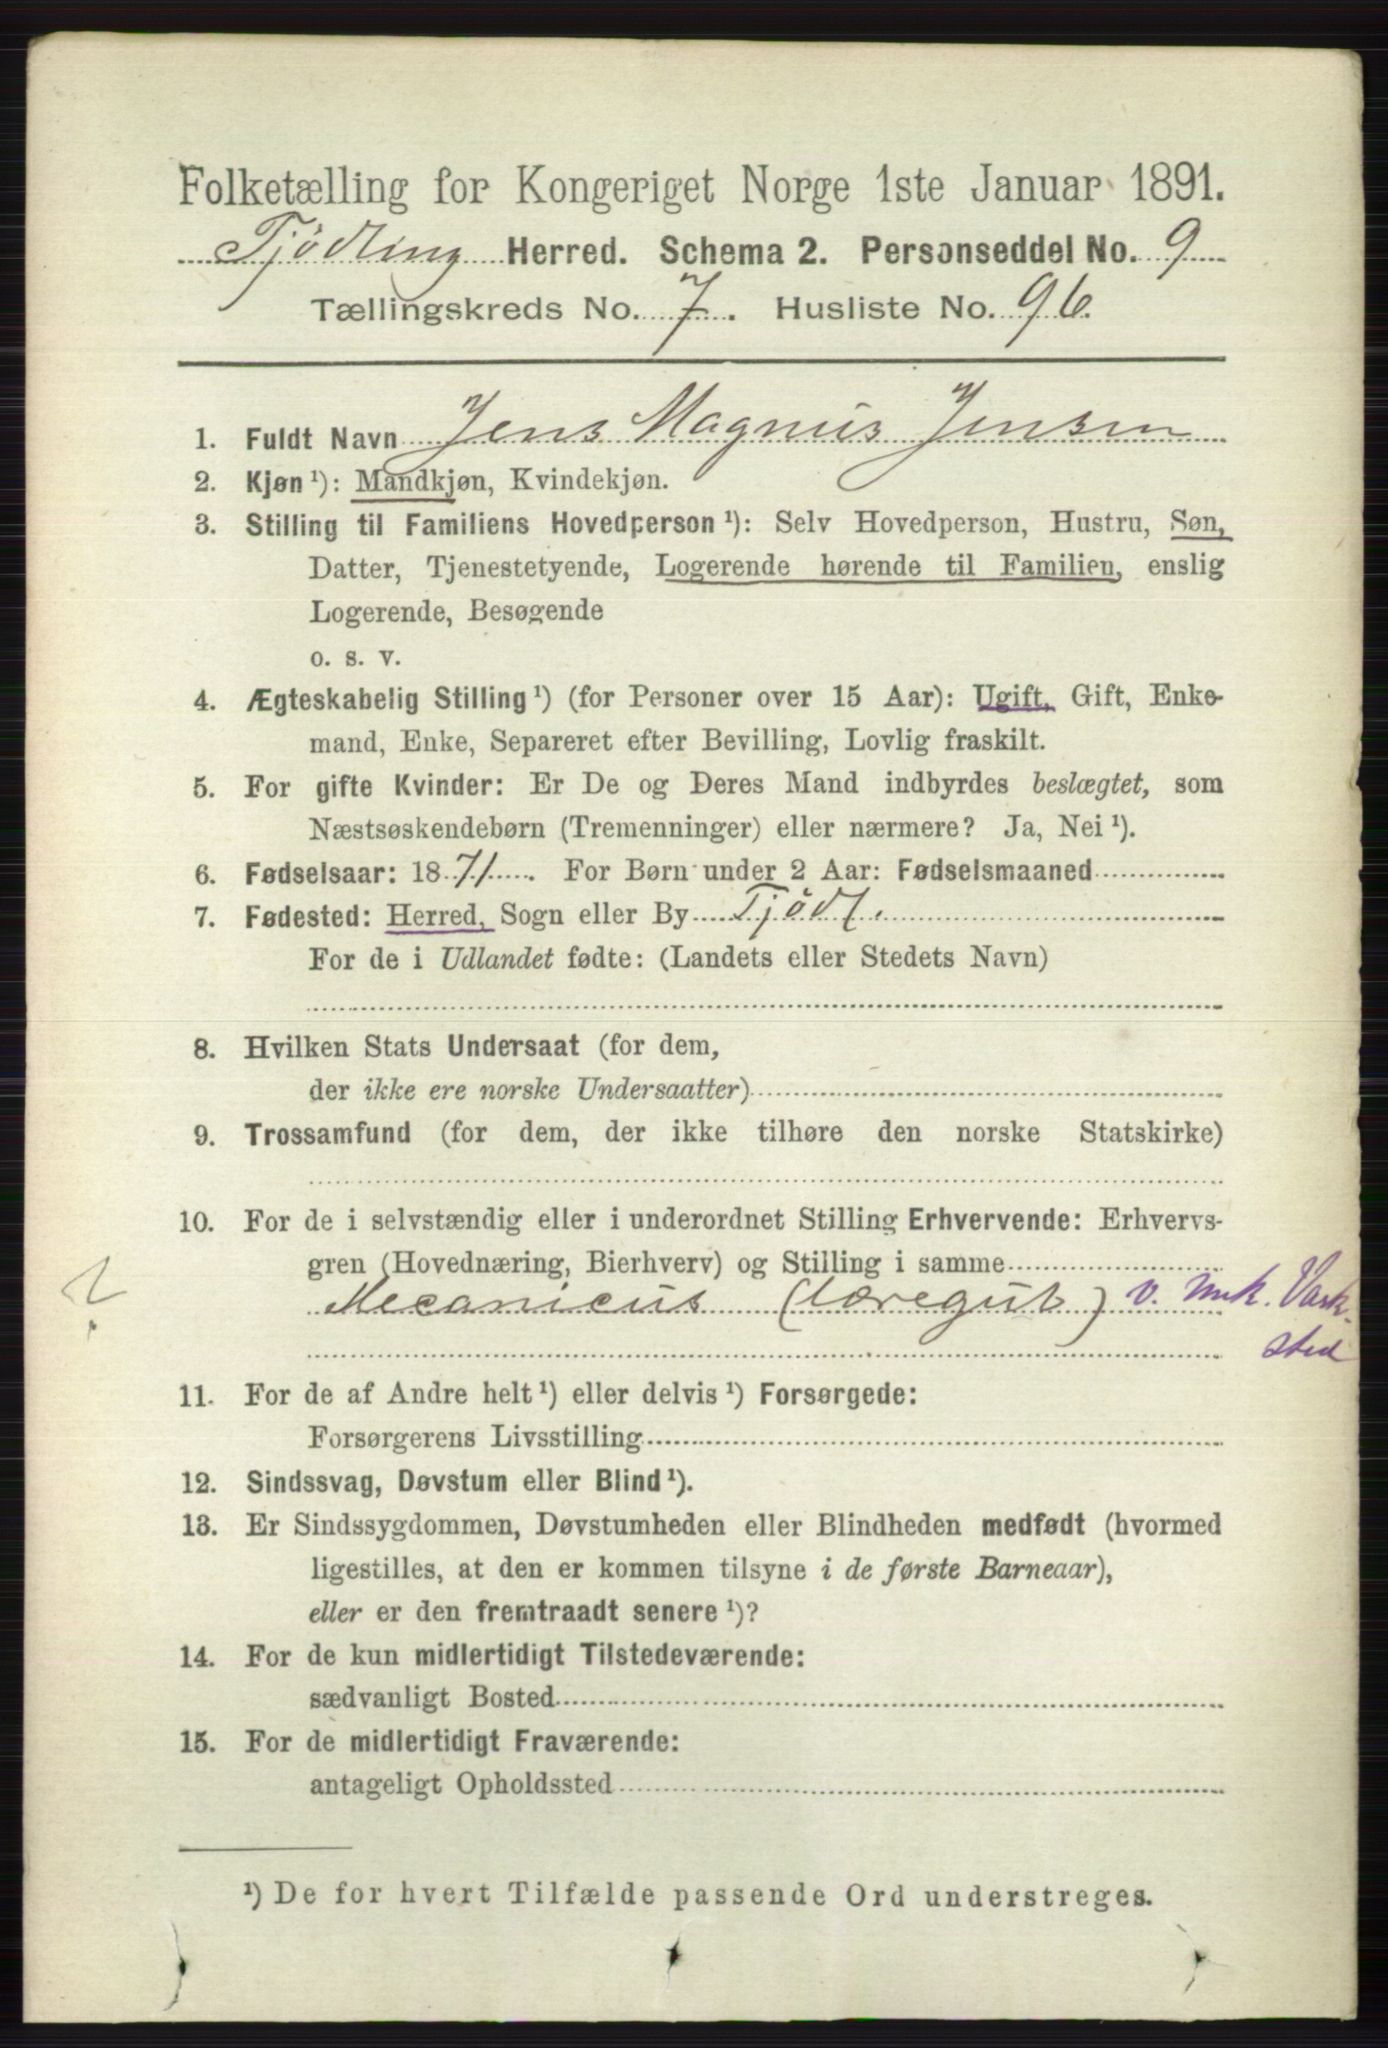 Folketælling for Kongeriget Norge 1ste Januar 1891.
Tjödling Herred. Schema 2. Personseddel No. 9
Tællingskreds No. 7. Husliste No. 96.
1. Fuldt Navn Jens Magnus Jensen
2. Kjøn ¹): Mandkjøn, Kvindekjøn.
3. Stilling til Familiens Hovedperson ¹): Selv Hovedperson, Hustru, Søn,
Datter, Tjenestetyende, Logerende hørende til Familien, enslig
Logerende, Besøgende
o. s. v.
4. Ægteskabelig Stilling ¹) (for Personer over 15 Aar): Ugift, Gift, Enke-
mand, Enke, Separeret efter Bevilling, Lovlig fraskilt.
5. For gifte Kvinder: Er De og Deres Mand indbyrdes beslægtet, som
Næstsøskendebørn (Tremenninger) eller nærmere? Ja, Nei ¹).
6. Fødselsaar: 1871. For Børn under 2 Aar: Fødselsmaaned
7. Fødested: Herred, Sogn eller By Tjödl.
For de i Udlandet fødte: (Landets eller Stedets Navn)
8. Hvilken Stats Undersaat (for dem,
der ikke ere norske Undersaatter)
9. Trossamfund (for dem, der ikke tilhøre den norske Statskirke)
10. For de i selvstændig eller i underordnet Stilling Erhvervende: Erhvervs-
gren (Hovednæring, Bierhverv) og Stilling i samme
? Mecanicus (Læregut) v. Mek. Værk-
sted
11. For de af Andre helt ¹) eller delvis ¹) Forsørgede:
Forsørgerens Livsstilling
12. Sindssvag, Døvstum eller Blind ¹).
13. Er Sindssygdommen, Døvstumheden eller Blindheden medfødt (hvormed
ligestilles, at den er kommen tilsyne i de første Barneaar),
eller er den fremtraadt senere ¹)?
14. For de kun midlertidigt Tilstedeværende:
sædvanligt Bosted
15. For de midlertidigt Fraværende:
antageligt Opholdssted
¹) De for hvert Tilfælde passende Ord understreges.